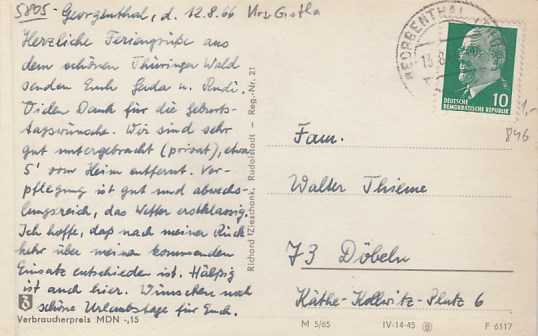 5805 - Georgenthal, d. 12.8.66 Krs Gotha
Herzliche Feriengrüße aus
dem schönen Thüringer Wald
senden Euch Gerda u. Rudi.
Vielen Dank für die Geburts-
tagswünsche. Wir sind sehr
gut untergebracht (privat), etwa
5' vom Heim entfernt. Ver-
pflegung ist gut und abwechs-
lungsreich, das Wetter erstklassig.
Ich hoffe, daß nach meiner Rück
kehr über meinen kommenden
Einsatz entschieden ist.
ist auch hier. Wünschen noch
schöne Urlaubstage für Euch.
Verbraucherpreis MDN -,15
Richard Zieschank, Rudolstadt - Reg.-Nr. 21
GEORGENTHAL
DEUTSCHE
DEMOKRATISCHE REPUBLIK
10
1,-
846
Fam.
Walter Thieme
73 Döbeln
Käthe-Kollwitz-Platz 6
M 5/65 IV-14-45 F 6117